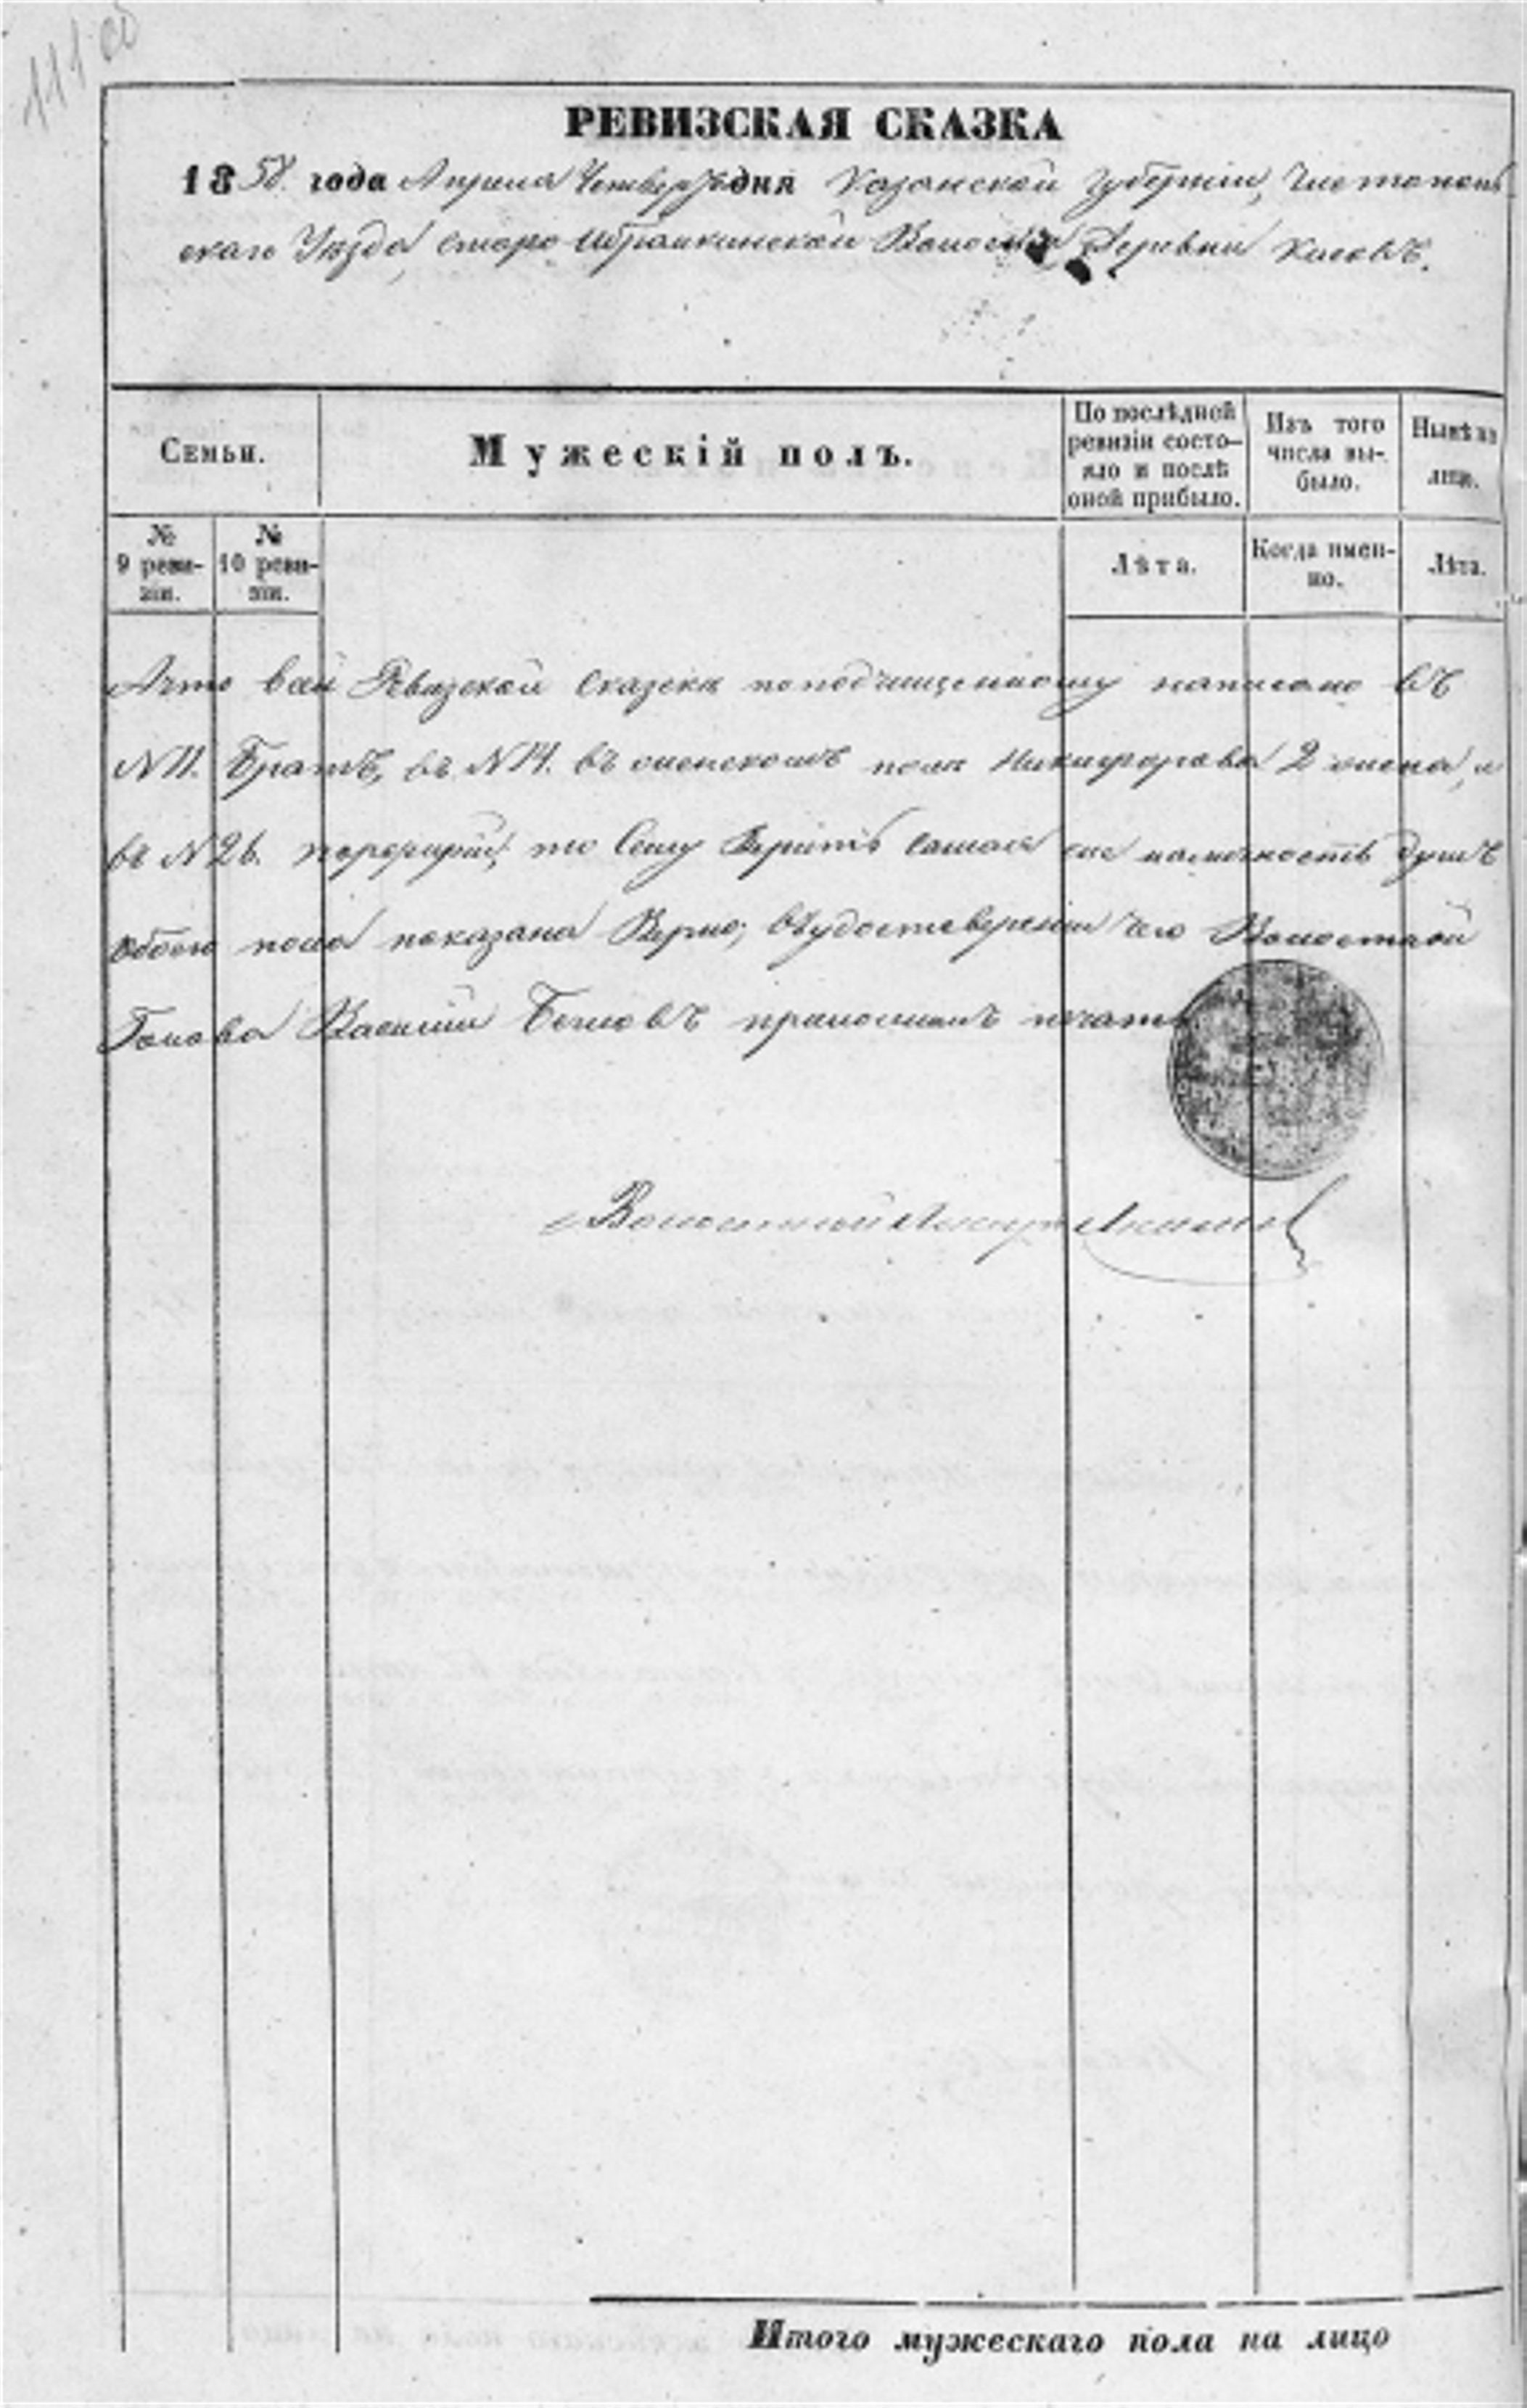 111 об
РЕВИЗСКАЯ СКАЗКА
1858. года Апреля Четвер дня Казанской Губерніи, Чистополь
скаго Уѣзда, Старо-Ибрайкинской Волости Деревни
Семьи.
Мужескій полъ.
По послѣдней
ревизіи состо-
яло и послѣ
оной прибыло.
Изъ того
числа вы-
было.
Нынѣ на
лицо.
№
9 реви-
зіи.
№
10 реви-
зіи.
Лѣта.
Когда имен-
но.
Лѣта.
А что в сей Ревизской Сказки по подчищенному написано въ
N 11. Братъ, въ N 14. въ женскомъ поле Никифорова 2 жена, и
въ N 26. то сему верить самая же наличность душъ
обоего пола показана верно; въ удостоверении чего Волостной
Голова Василий приложилъ печать
Волостной Писарь
Итого мужескаго пола на лицо